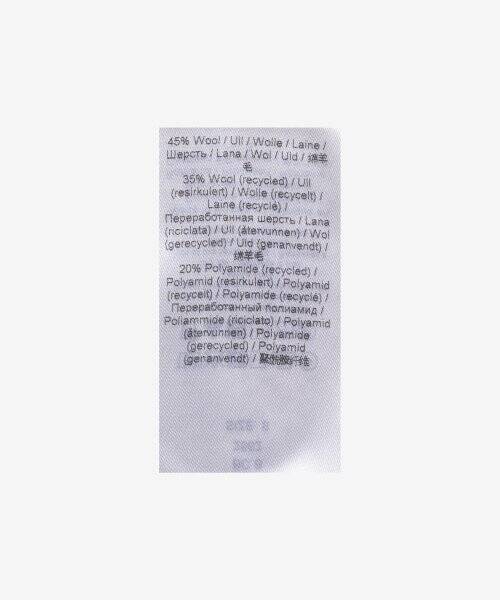 45% Wool / Ull / Wolle / Laine /
Шерсть / Lana / Wol / Uld / 绵羊
毛
35% Wool (recycled) / Ull
(resirkulert) / Wolle (recycelt) /
Laine (recyclé) /
Переработанная шерсть / Lana
(riciclata) / Ull (återvunnen) / Wol
(gerecycled) / Uld (genanvendt) /
绵羊毛
20% Polyamide (recycled) /
Polyamid (resirkulert) / Polyamid
(recycelt) / Polyamide (recyclé) /
Переработанный полиамид /
Poliammide (riciclato) / Polyamid
(återvunnen) / Polyamide
(gerecycled) / Polyamid
(genanvendt) / 聚酰胺纤维